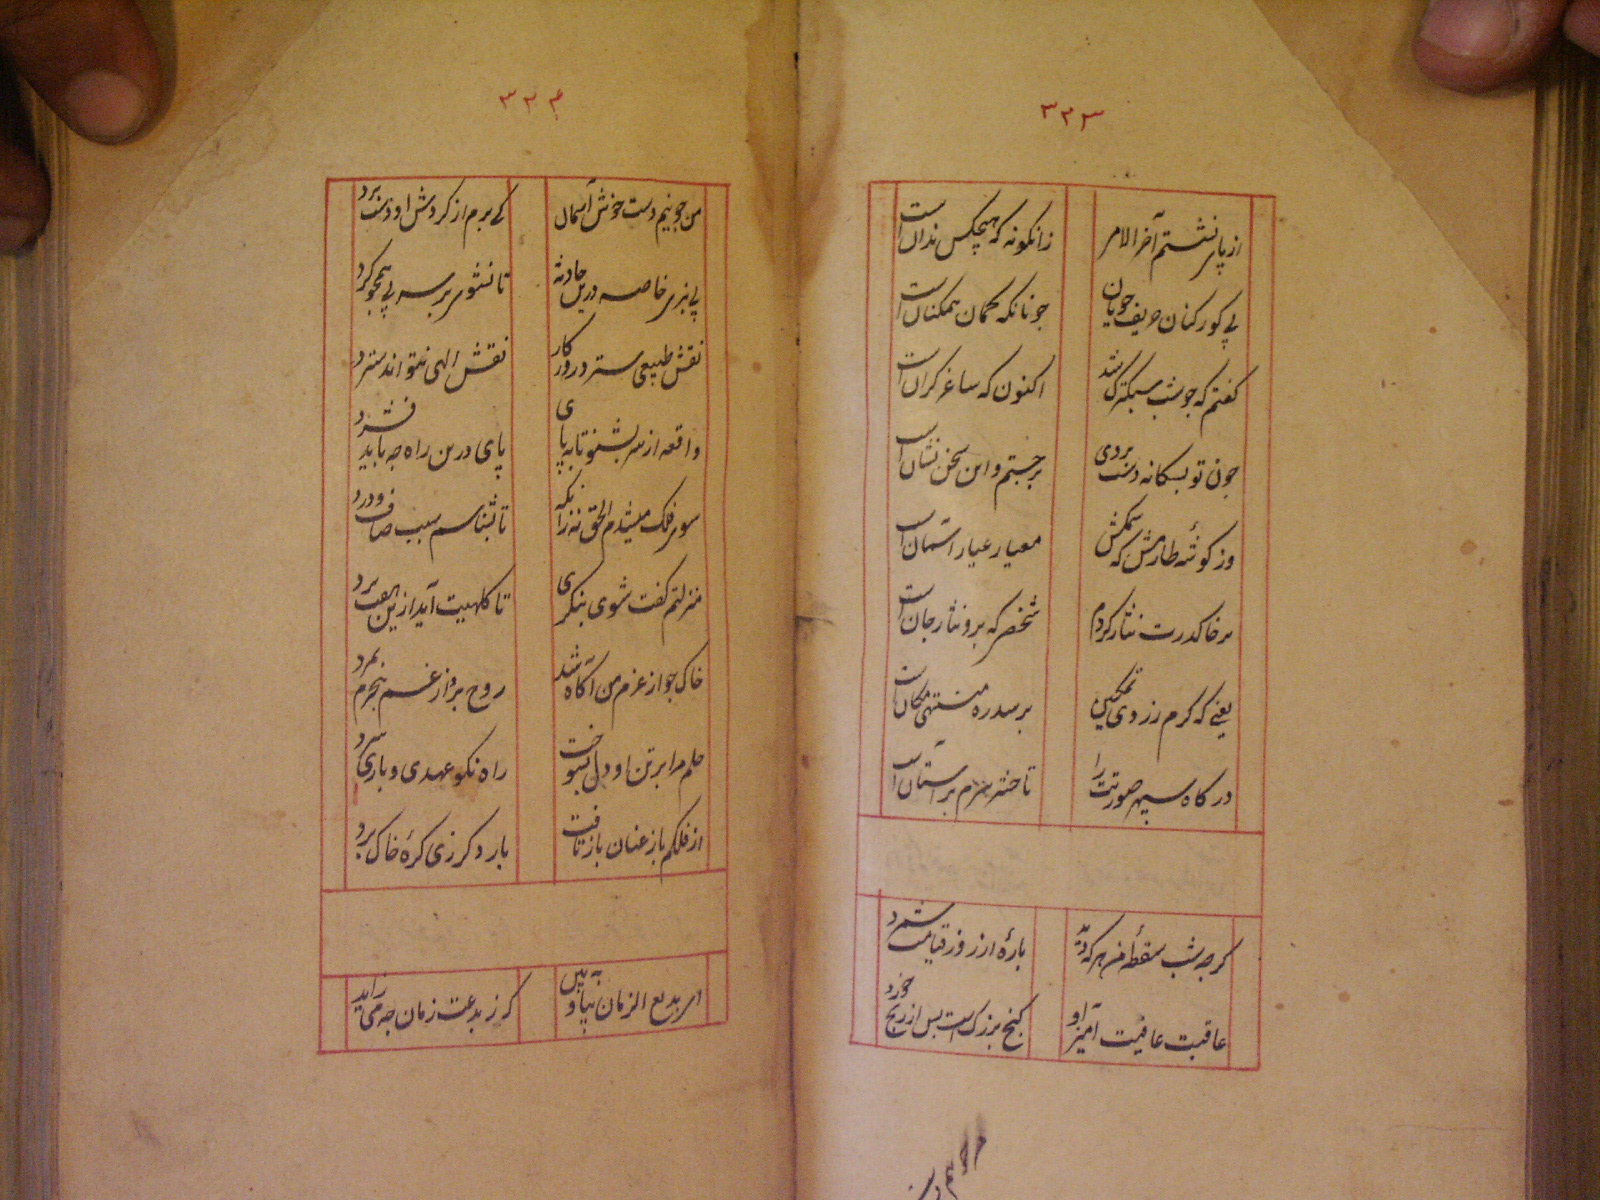 ۳۲۳
از پا بنشستم آخر الامر زانگونه که هیچکس ندان است
بی کور کنان حریف جویان جونانکه کمان همکنان است
کفتم که جو شب سبکترک شد اکنون که ساغر کران است
جون تو بسکانه دست بردی برجستم و این سخن نشان است
وز کوشه طارمش که سمکش معیار عیار استمان است
بر خاکدرت نثار کردم شخصی که برو نثار جان است
یعنی که کرم ز روی تمکین بر سدره منتهی مکان است
در کاه سپهر صورتت را تا حشر سرم بر آستان است
کرجه شب سقطه من هرکه دید پارهٔ از روز قیامت شمرد
عاقبت عافیت آمیز او کنج بزرک است پس از رنج خورد
۳۲۴
من جو نیم دست خوش آسمان کی برم از کردش او دست برد
پی نبری خاصه درین حادثه تا نشوی بر سر پی همجو کرد
نقش طبیعی سترد روزکار نقش الهی نتواند سترد
واقعه از سر بشنو تا بپای پای درین راه جه باید فشرد
سوی فلک میشدم الحق نه زانکه تا بشناسم سبب صاف و درد
منزلتم کفت شوی بنکری تا کلهیت آید ازین هفت برد
خاک جو از عزم من آکاه شد روح ببرد از غم بنجرم بمرد
حلم مرا بر تن او دل بسوخت راه نکو عهدی و یاری سپرد
از فلکم باز عنان باز تافت بار دکر زی کرهٔ خاک برد
ای بدیع الزمان بیا و ببین کز بدعت زمان جه می زاید